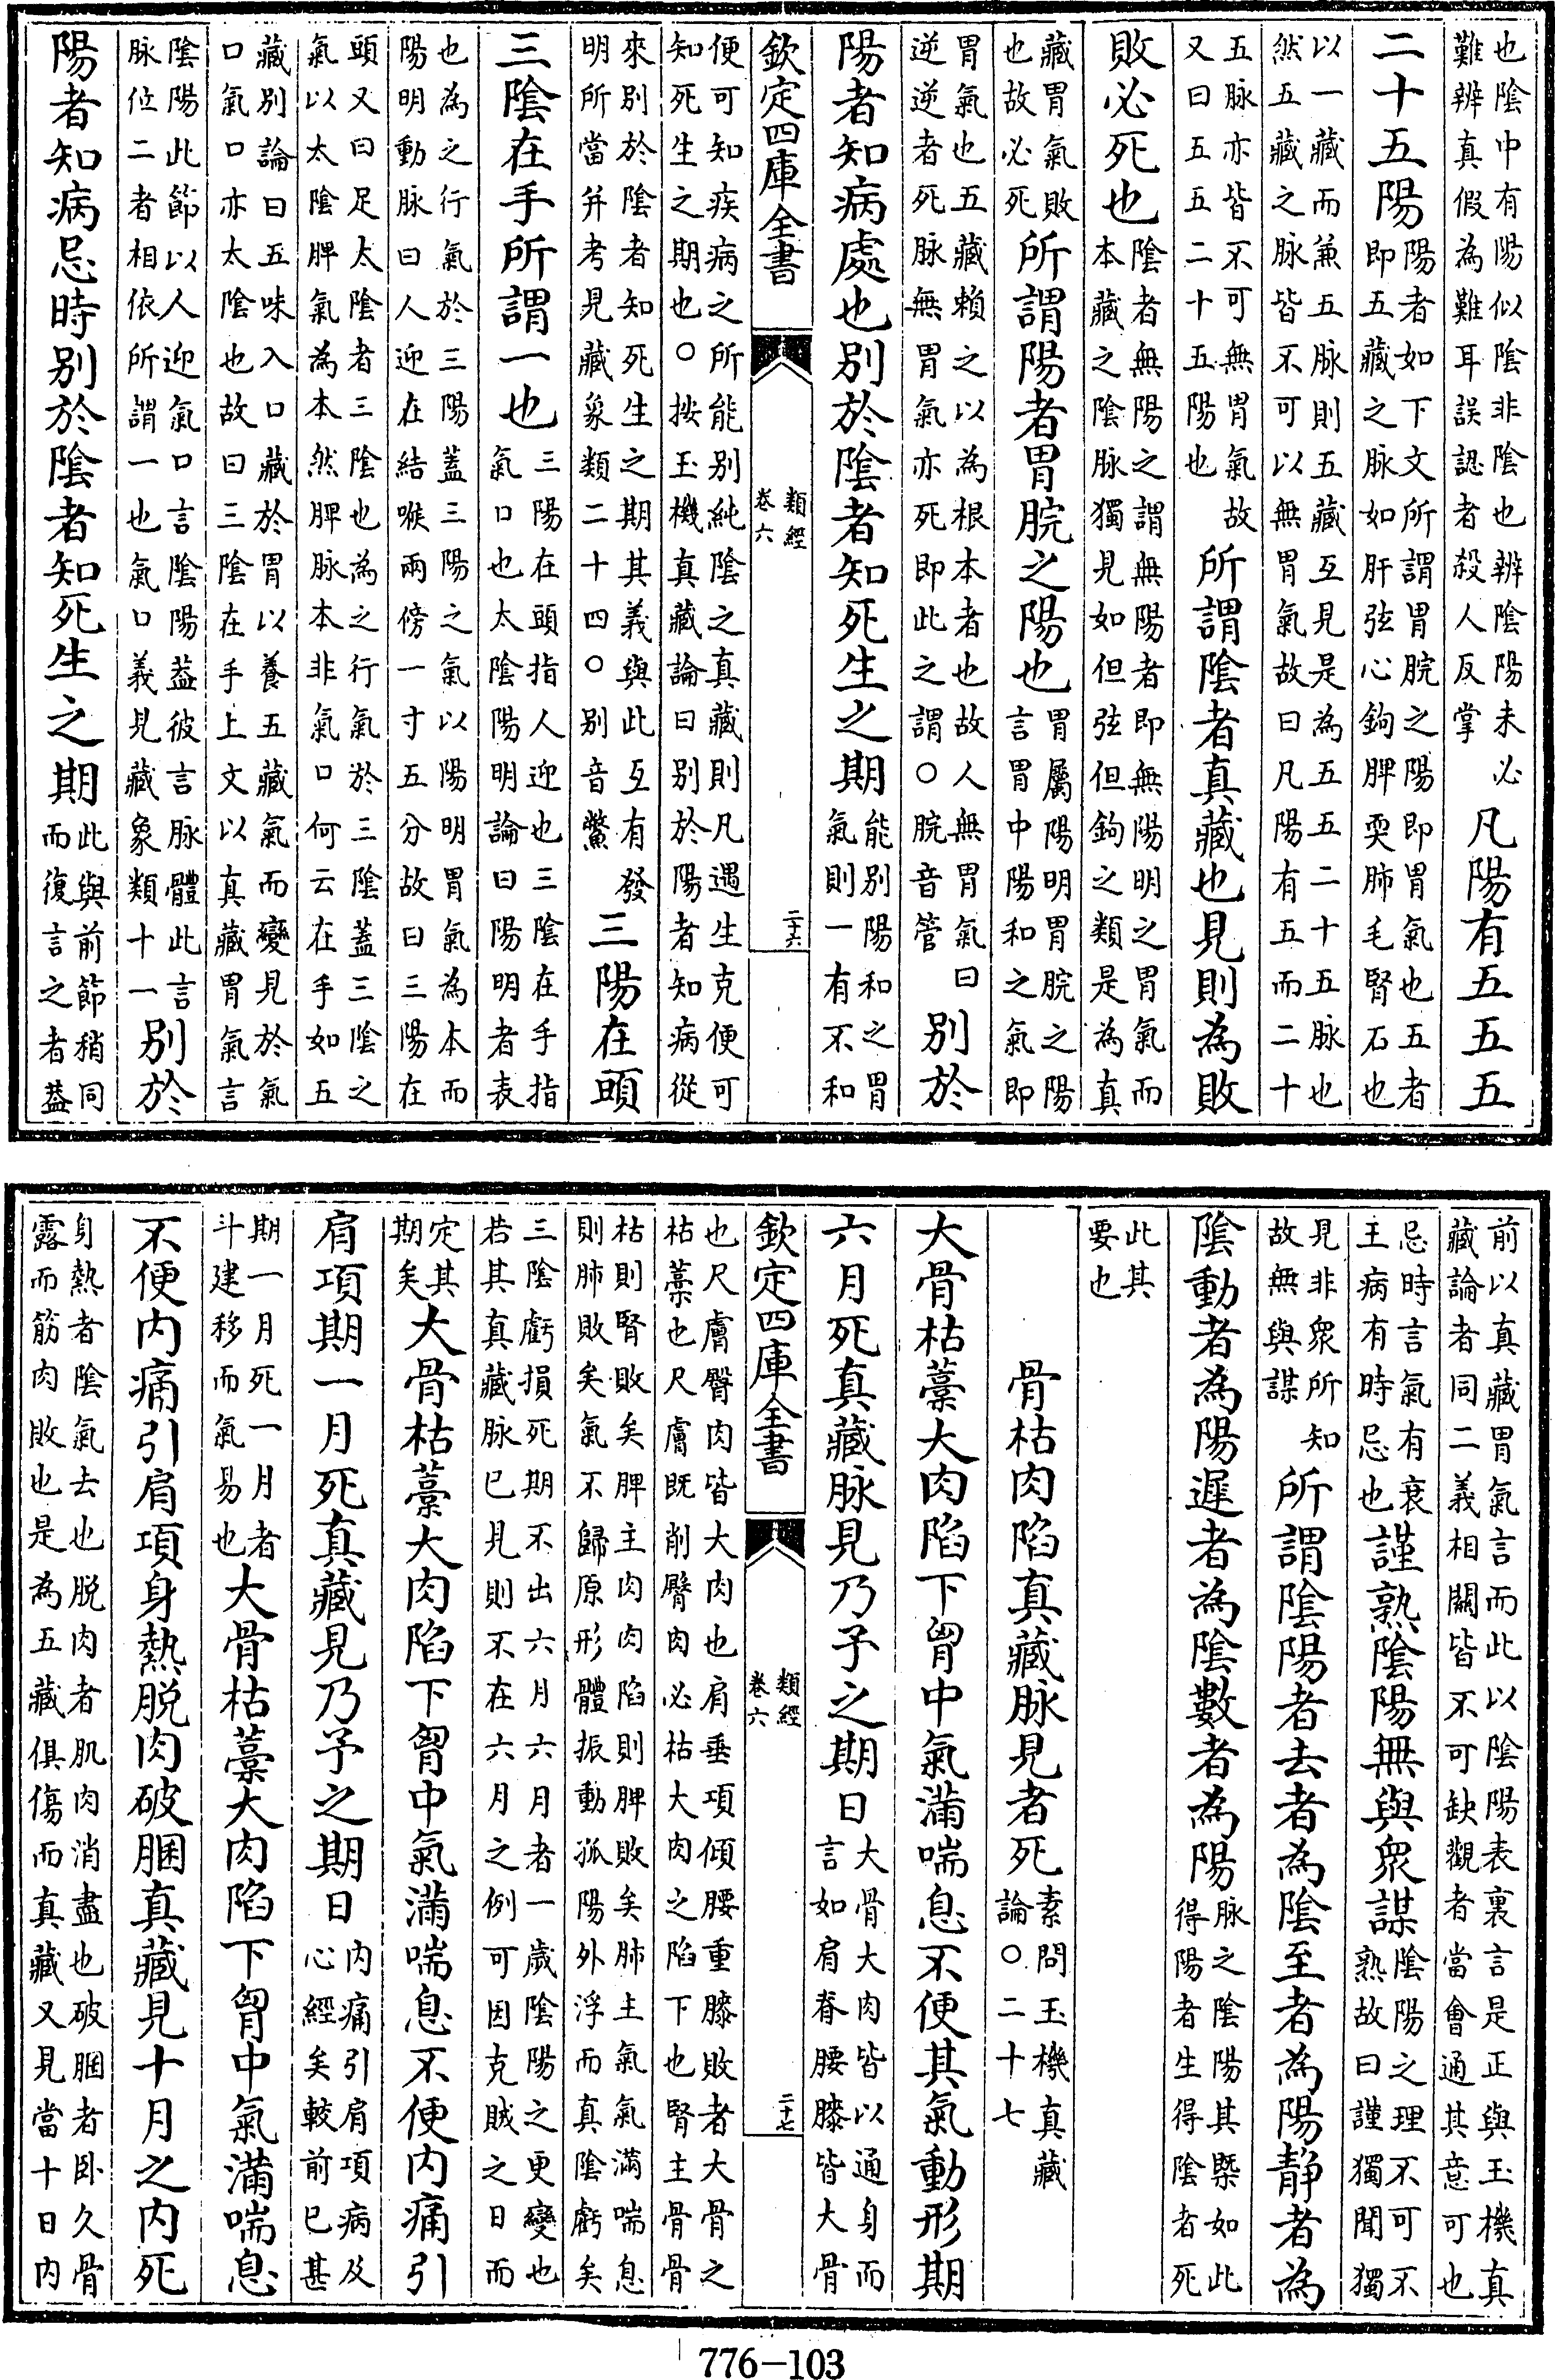 也陰中有陽似陰非陰也辨陰陽未必難辨真假為難耳誤認者殺人反掌凡陽有五五五
二十五陽陽者如下文所謂胃脘之陽即胃氣也五者即五藏之脉如肝弦心鉤脾耎肺毛腎石也
以一藏而兼五脉則五藏互見是為五五二十五脉也然五藏之脉皆不可以無胃氣故曰凡陽有五而二十
五脉亦皆不可無胃氣故又曰五五二十五陽也所謂陰者真藏也見則為敗
敗必死也陰者無陽之謂無陽者即無陽明之胃氣而本藏之陰脉獨見如但弦但鉤之類是為真
藏胃氣敗也故必死所謂陽者胃脘之陽也胃屬陽明胃脘之陽言胃中陽和之氣即
胃氣也五藏賴之以為根本者也故人無胃氣曰逆逆者死脉無胃氣亦死即此之謂○脘音管別於
陽者知病處也別於陰者知死生之期能別陽和之胃氣則一有不和
欽定四庫全書 類經 卷六 二十六
便可知疾病之所能別純陰之真藏則凡遇生克便可知死生之期也○按玉機真藏論曰別於陽者知病從
來別於陰者知死生之期其義與此互有發明所當并考見藏象類二十四○別音鱉三陽在頭
三陰在手所謂一也三陽在頭指人迎也三陰在手指氣口也太陰陽明論曰陽明者表
也為之行氣於三陽蓋三陽之氣以陽明胃氣為本而陽明動脉曰人迎在結喉兩傍一寸五分故曰三陽在
頭又曰足太陰者三陰也為之行氣於三陰蓋三陰之氣以太陰脾氣為本然脾脉本非氣口何云在手如五
藏別論曰五味入口藏於胃以養五藏氣而變見於氣口氣口亦太陰也故曰三陰在手上文以真藏胃氣言
陰陽此節以人迎氣口言陰陽葢彼言脉體此言脉位二者相依所謂一也氣口義見藏象類十一別於
陽者知病忌時別於陰者知死生之期此與前節稍同而復言之者葢
前以真藏胃氣言而此以陰陽表裏言是正與玉機真藏論者同二義相關皆不可缺觀者當會通其意可也
忌時言氣有衰王病有時忌也謹熟陰陽無與衆謀陰陽之理不可不熟故曰謹獨聞獨
見非衆所知故無與謀所謂陰陽者去者為陰至者為陽靜者為
陰動者為陽遲者為陰數者為陽脉之陰陽其槩如此得陽者生得陰者死
此其要也
骨枯肉陷真藏脉見者死素問玉機真藏論○二十七
大骨枯藁大肉陷下胷中氣滿喘息不便其氣動形期
六月死真藏脉見乃予之期日大骨大肉皆以通身而言如肩脊腰膝皆大骨
欽定四庫全書 類經 卷六 二十七
也尺膚臀肉皆大肉也肩垂項傾腰重膝敗者大骨之枯藁也尺膚既削臀肉必枯大肉之陷下也腎主骨骨
枯則腎敗矣脾主肉肉陷則脾敗矣肺主氣氣滿喘息則肺敗矣氣不歸原形體振動孤陽外浮而真陰虧矣
三陰虧損死期不出六月六月者一歲陰陽之更變也若其真藏脉已見則不在六月之例可因克賊之日而
定其期矣大骨枯藁大肉陷下胷中氣滿喘息不便內痛引
肩項期一月死真藏見乃予之期日內痛引肩項病及心經矣較前已甚
期一月死一月者斗建移而氣易也大骨枯藁大肉陷下胷中氣滿喘息
不便內痛引肩項身熱脫肉破䐃真藏見十月之內死
身熱者陰氣去也脫肉者肌肉消盡也破䐃者卧久骨露而筋肉敗也是為五藏俱傷而真藏又見當十日內
776-103